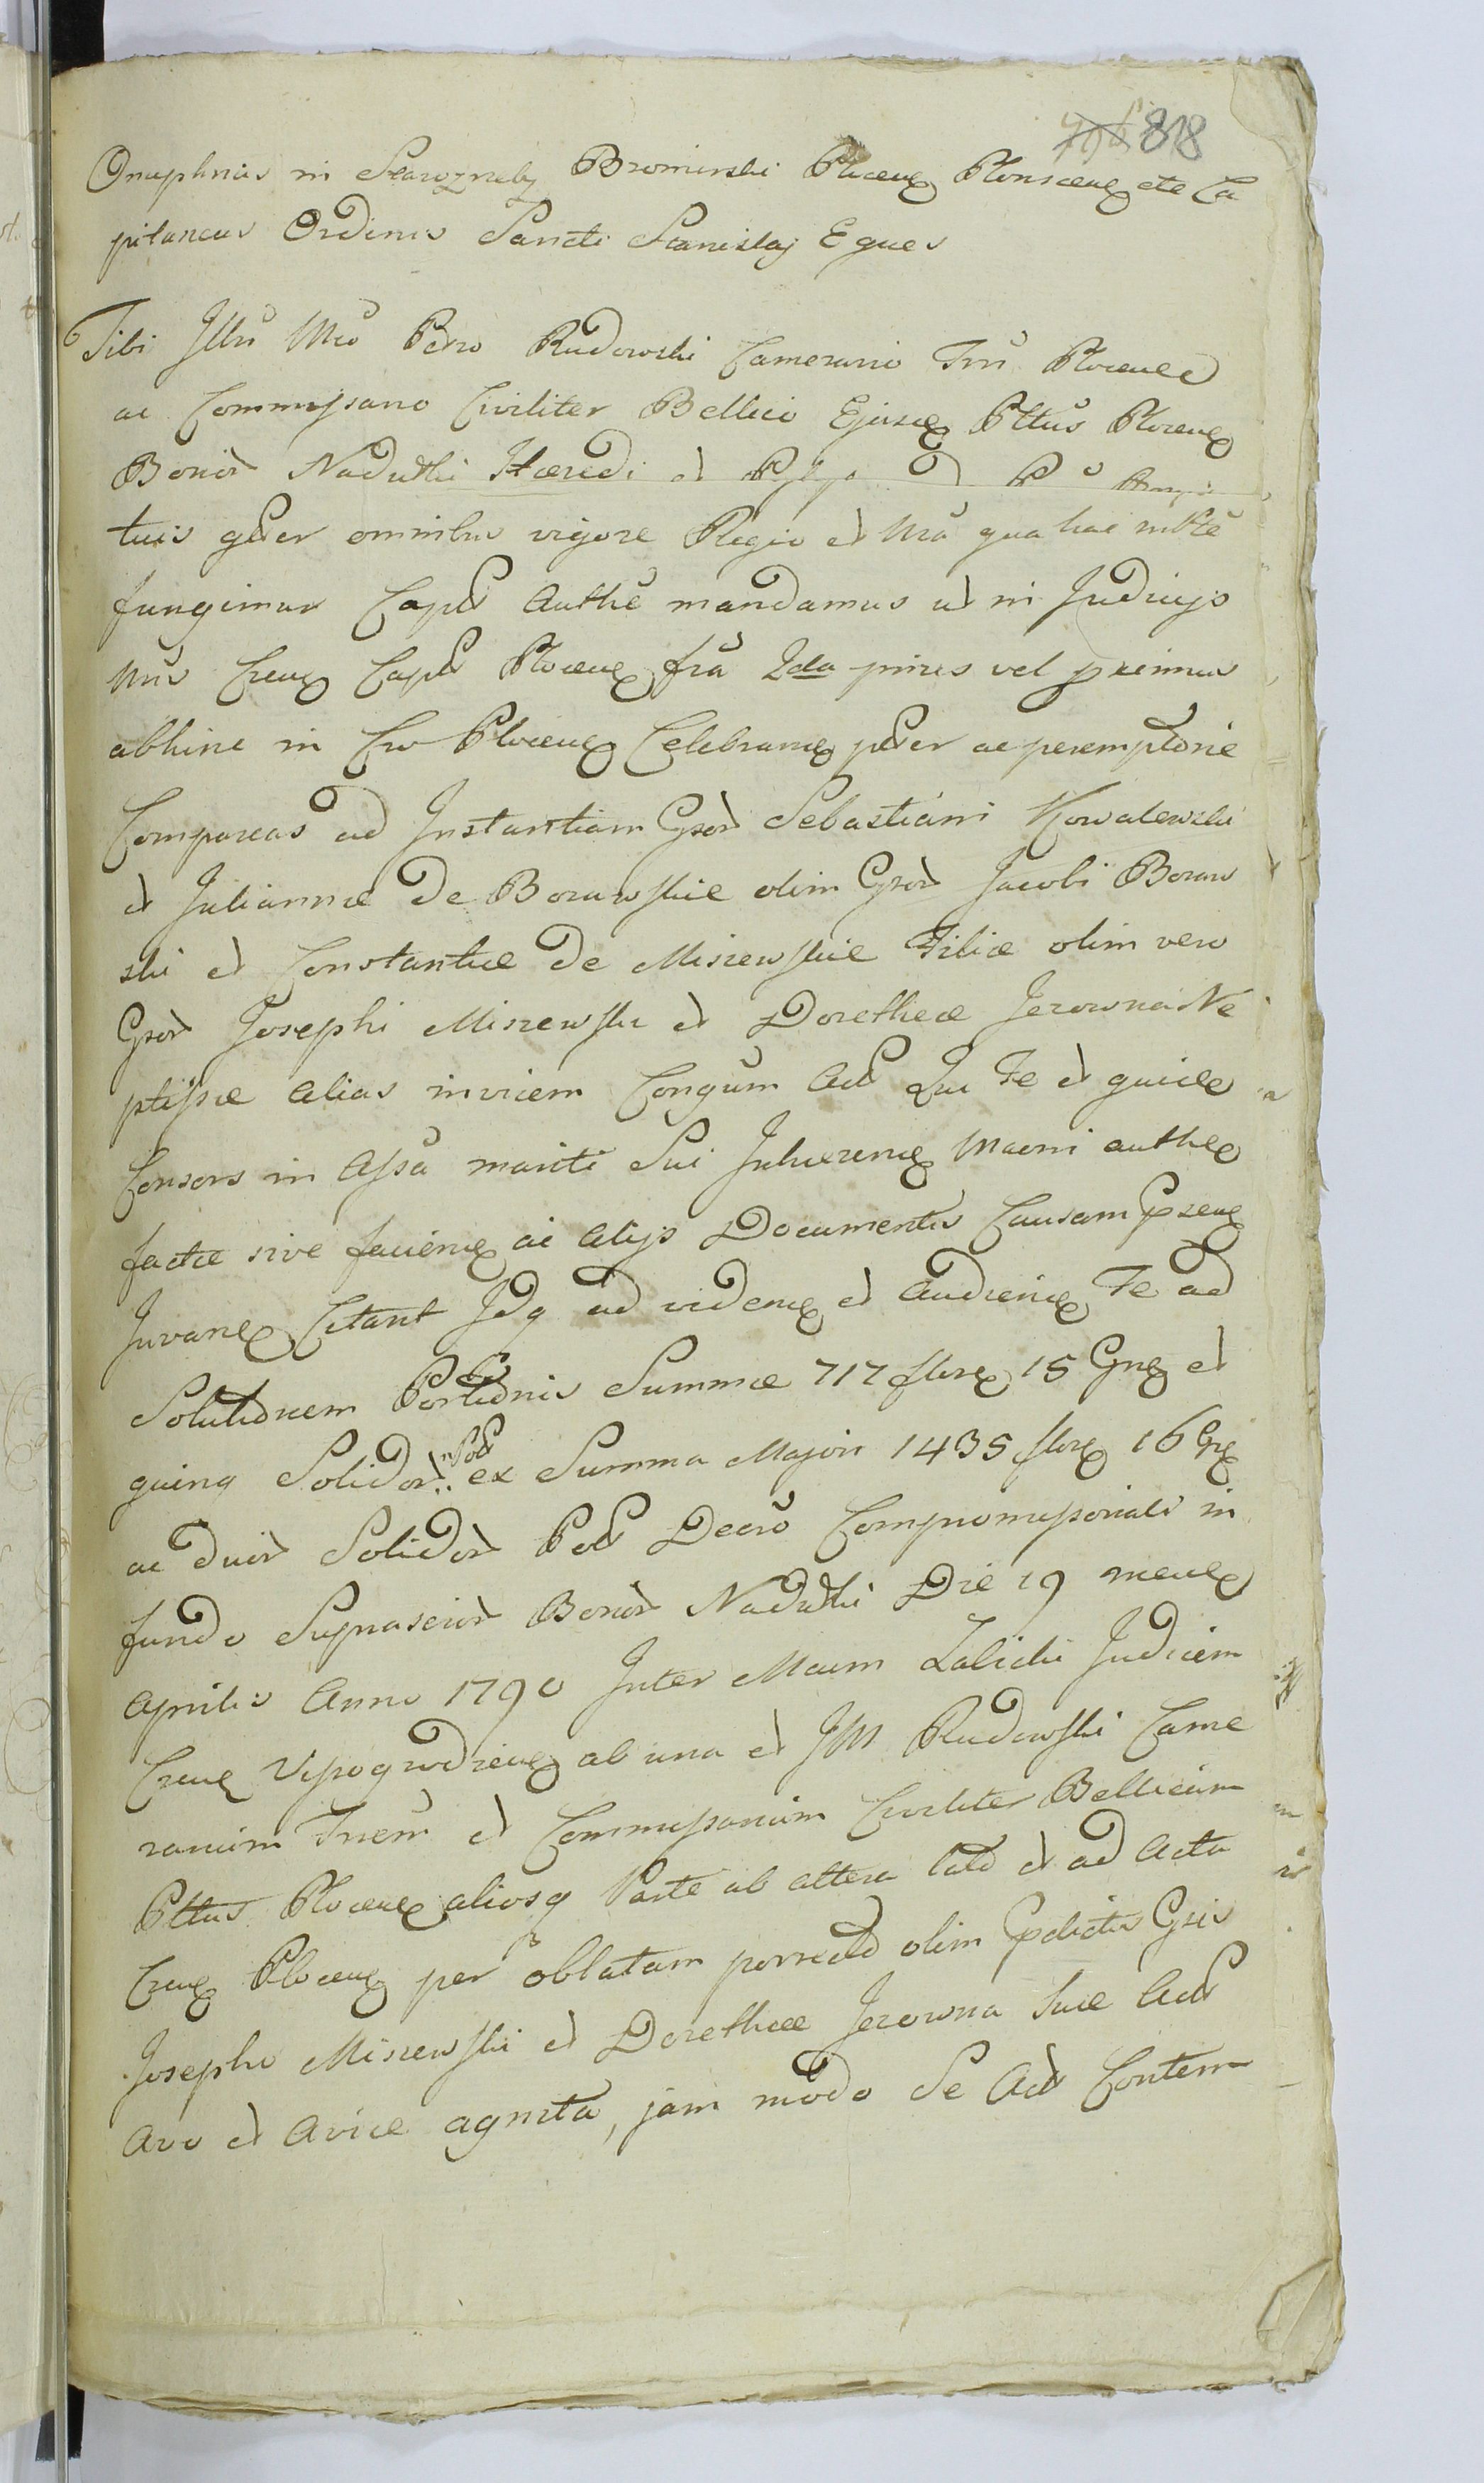 818
Onuphrius in Skarozreby Bromirski Plocen Plonscen etc Ca
pitaneus Ordinis Sancti Stanislaj Eques
Tibi Illri Mco Petro Rudowski Camerario Trri Plocen
ac Commissario Civiliter Bellico Ejusd Plttus Plocen
Bonor Nadulki Haeredi et
tuis gner omnibus vigore Regia et Nra qua hac in Pte
fungimur Capli Authe mandamus ut in Judicijs
Nris Cren Capli Plocen fra 2da pmis vel proximius
abhinc in Cro Plocen Celebran pter ac peremptorie
Compareas ad Instantiam Gsor Sebastiani Kowalewski
et Juliannae de Borawskie olim Gsor Jacobi Boraw
ski et Constantiae de Miszewskie Filiae olim vero
Gsor Josephi Miszewski et Dorotheae Jerowna Ne
ptissae alias invicem Congum Act Qui Te et quidem
Consors in Assa mariti Sui Inhaeren Macni authe
factae sive facien ac alijs Documentis Causam psen
Juvan Citant Idq ad viden et audien Te ad
Solutionem Portionis Summae 717 flor 15 Gr et
quinq Solidor Pol ex Summa Majori 1435 flor 16 Gr
ac duor Solidor Pol Decro Compromissoriali in
fundo Suprascior Bonor Nadulki Die 19 mens
Aprilis Anno 1790 Inter Mcum Zalicki Judicem
Cren Vissogrodien ab una et JM Rudowski Came
rarium Trrem et Commissarium Civiliter Bellicum
Plttus Plocen aliosq Parte ab altera lato et ad Acta
Cren Plocen per oblatam porrecto olim pdictis Gsis
Josepho Miszewski et Dorotheae Jerowna suae Act
Avo et Aviae agnita, jam modo Se Act Contem